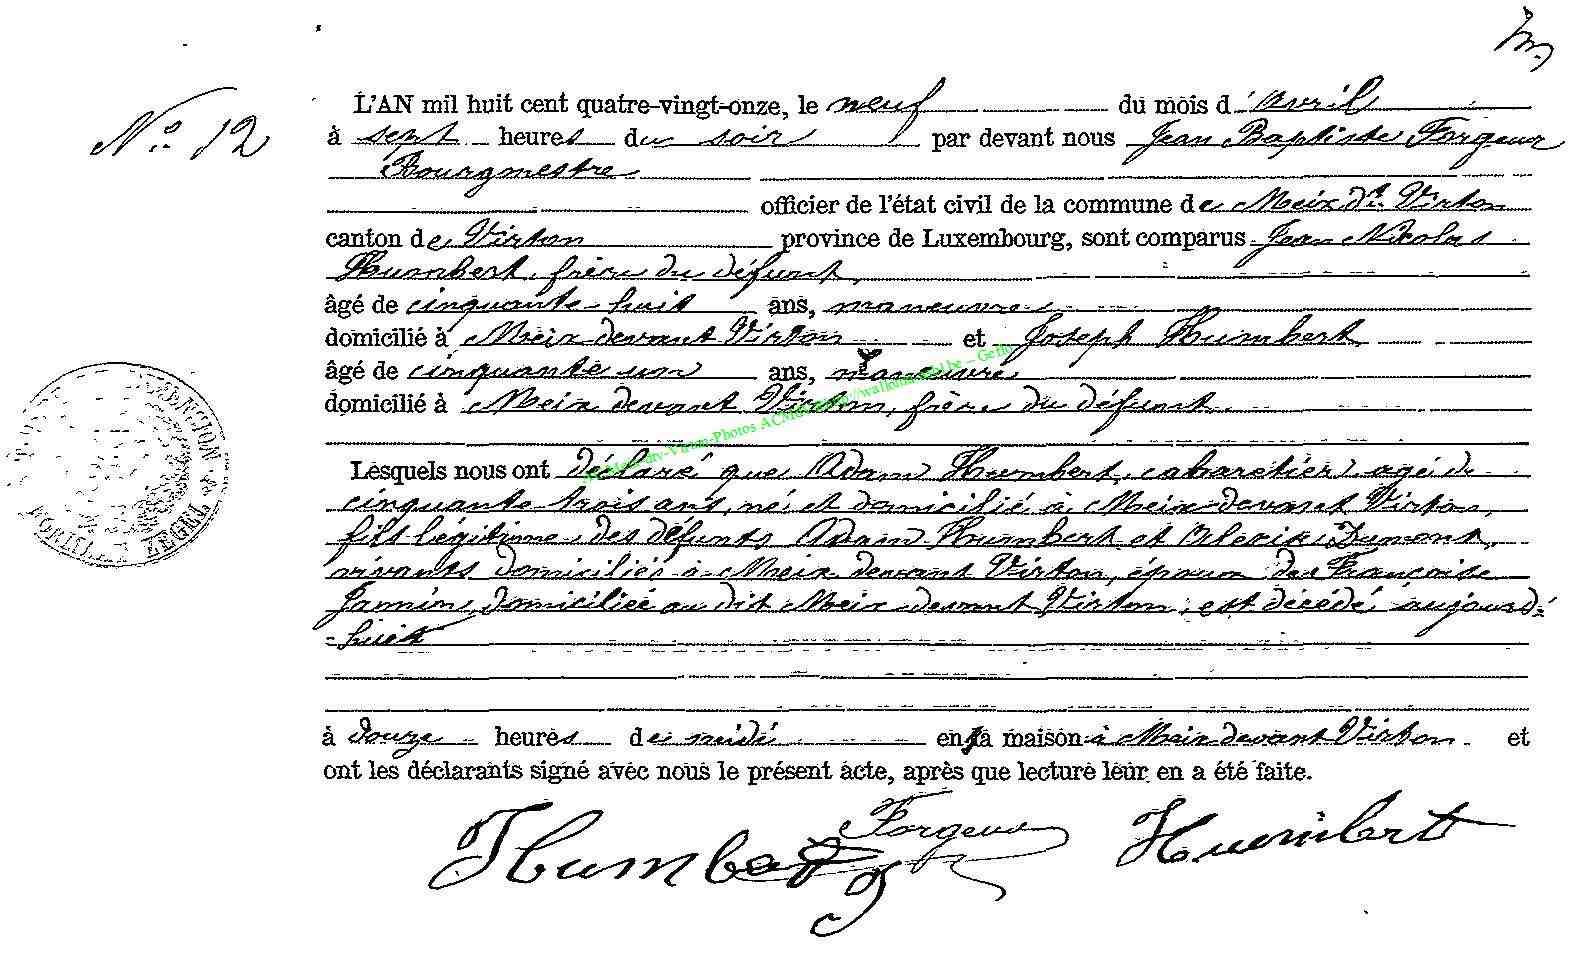 N° 12
L'AN mil huit cent quatre-vingt-onze, le neuf du mois d'avril
à sept heures du soir par devant nous Jean Baptiste Forgeur
Bourgmestre
officier de l'état civil de la commune de Meix dt Virton
canton de Virton province de Luxembourg, sont comparus Jean Nicolas
Humbert, frère du défunt,
âgé de cinquante-huit ans, maneuvre
domicilié à Meix devant Virton et Joseph Humbert
âgé de cinquante un ans, maneuvre
domicilié à Meix devant Virton, frère du défunt
Lesquels nous ont déclaré que Adam Humbert, cabaretier, agé de
cinquante trois ans, né et domicilié à Meix devant Virton,
fils légitime des défunts Adam Humbert et Dumont,
vivants domiciliés à Meix devant Virton, époux de Françoise
Jannin, domiciliée au dit Meix devant Virton, est décédé aujourd'
-huit
à douze heures de midi en sa maison à Meix devant Virton et
ont les déclarants signé avec nous le présent acte, après que lecture leur en a été faite.
Humbert J Forgeur Humbert